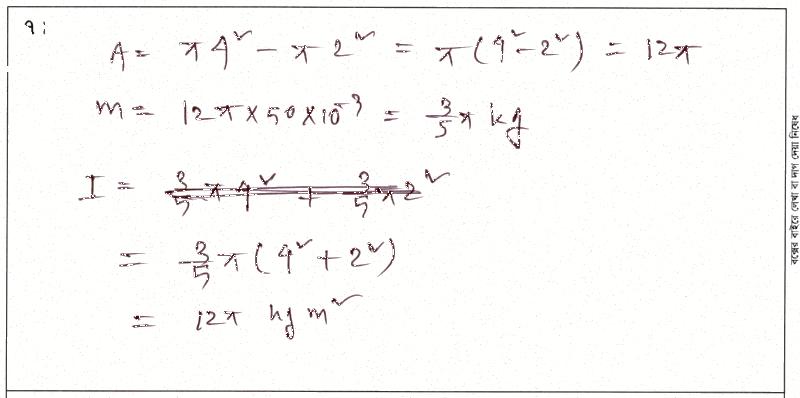 ৭:
A = π4² - π2² = π(4²-2²) = 12π
m = 12π×50×10⁻³ = 3/5 π kg
I = 3/5 π 4² + 3/5 π 2²
= 3/5 π (4² + 2²)
= 12π kg m²
বক্সের বাইরে লেখা বা দাগ দেয়া নিষেধ